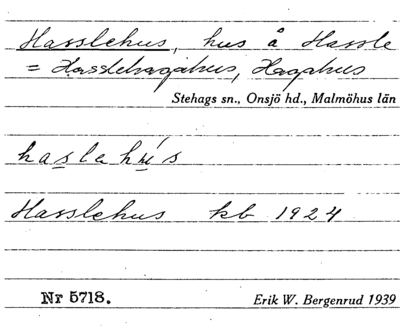 Hasslehus, hus å Hassle
= Hasslehagahus, Hagahus
Stehags sn., Onsjö hd., Malmöhus län
haslahús
Hasslehus kb 1924
Nr 5718.
Erik W. Bergenrud 1939